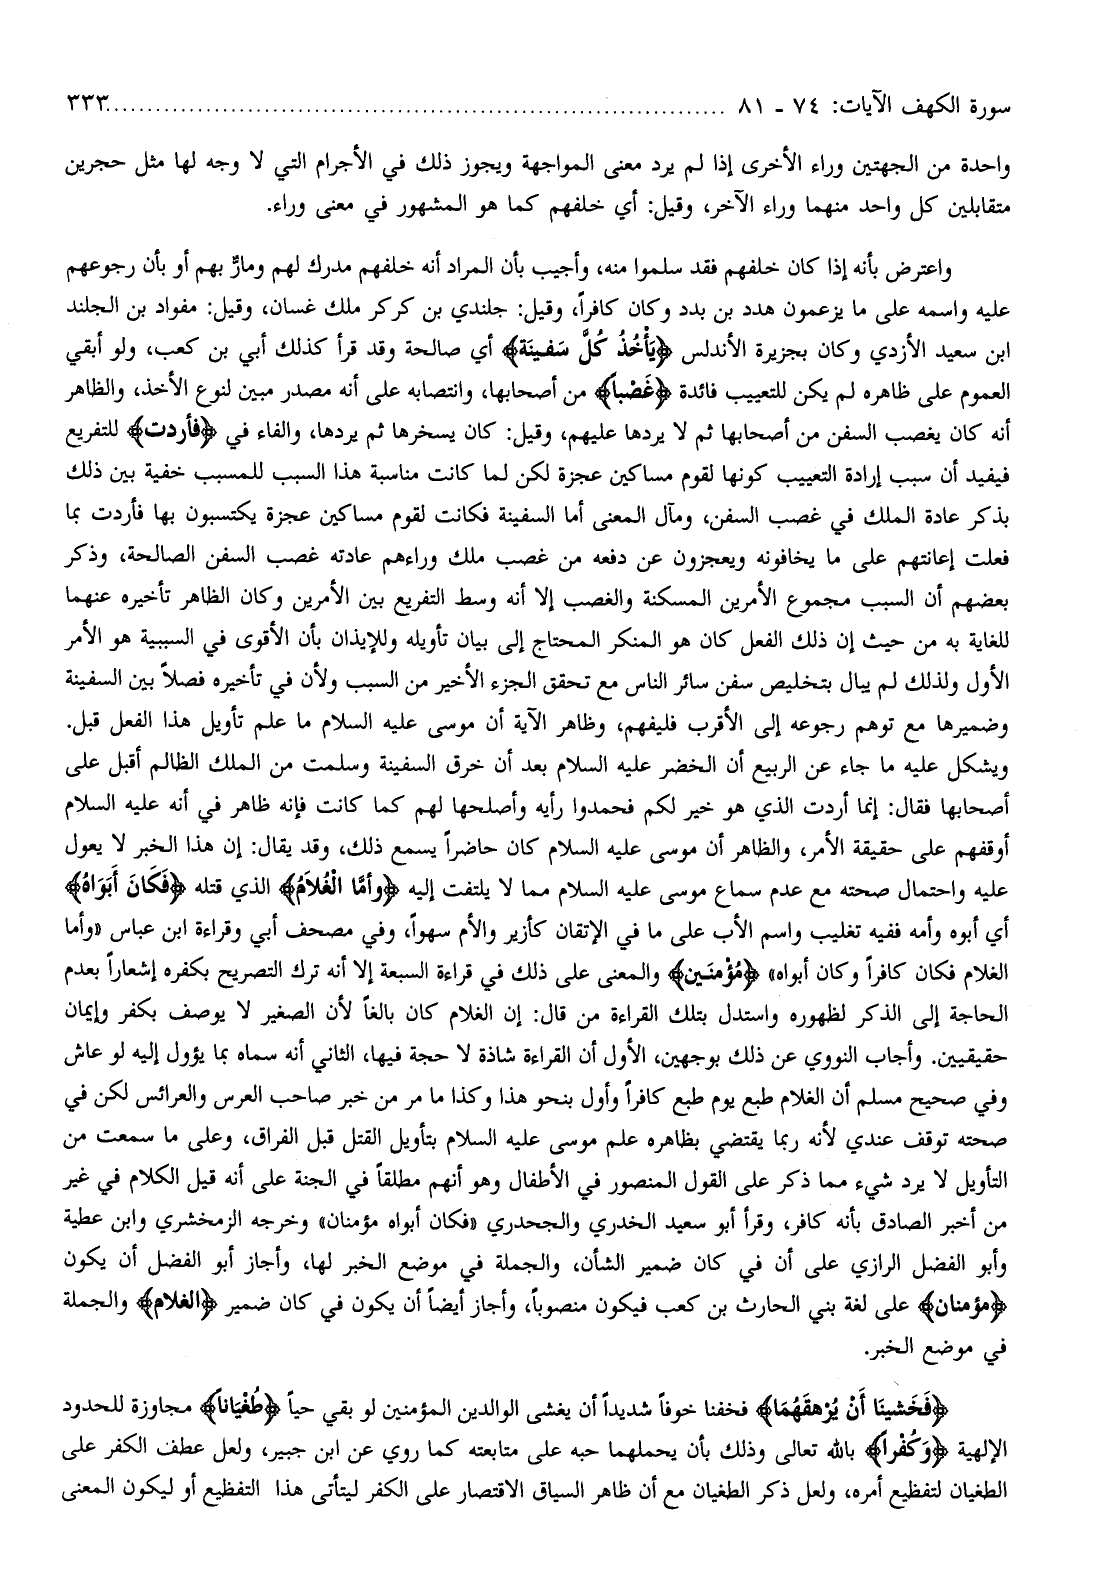 سورة الكهف الآيات: ٧٤ - ٨١ ........................................................................... ٣٣٣
واحدة من الجهتين وراء الأخرى إذا لم يرد معنى المواجهة ويجوز ذلك في الأجرام التي لا وجه لها مثل حجرين
متقابلين كل واحد منهما وراء الآخر، وقيل: أي خلفهم كما هو المشهور في معنى وراء.
واعترض بأنه إذا كان خلفهم فقد سلموا منه، وأجيب بأن المراد أنه خلفهم مدرك لهم ومارٌّ بهم أو بأن رجوعهم
عليه واسمه على ما يزعمون هدد بن بدد وكان كافراً، وقيل: جلندي بن كركر ملك غسان، وقيل: مفواد بن الجلند
ابن سعيد الأزدي وكان بجزيرة الأندلس ﴿يَأْخُذُ كُلَّ سَفينَة﴾ أي صالحة وقد قرأ كذلك أبي بن كعب، ولو أبقي
العموم على ظاهره لم يكن للتعييب فائدة ﴿غَصْباً﴾ من أصحابها، وانتصابه على أنه مصدر مبين لنوع الأخذ، والظاهر
أنه كان يغصب السفن من أصحابها ثم لا يردها عليهم، وقيل: كان يسخرها ثم يردها، والفاء في ﴿فأردت﴾ للتفريع
فيفيد أن سبب إرادة التعييب كونها لقوم مساكين عجزة لكن لما كانت مناسبة هذا السبب للمسبب خفية بين ذلك
بذكر عادة الملك في غصب السفن، ومآل المعنى أما السفينة فكانت لقوم مساكين عجزة يكتسبون بها فأردت بما
فعلت إعانتهم على ما يخافونه ويعجزون عن دفعه من غصب ملك وراءهم عادته غصب السفن الصالحة، وذكر
بعضهم أن السبب مجموع الأمرين المسكنة والغصب إلا أنه وسط التفريع بين الأمرين وكان الظاهر تأخيره عنهما
للغاية به من حيث إن ذلك الفعل كان هو المنكر المحتاج إلى بيان تأويله وللإيذان بأن الأقوى في السببية هو الأمر
الأول ولذلك لم يبال بتخليص سفن سائر الناس مع تحقق الجزء الأخير من السبب ولأن في تأخيره فصلاً بين السفينة
وضميرها مع توهم رجوعه إلى الأقرب فليفهم، وظاهر الآية أن موسى عليه السلام ما علم تأويل هذا الفعل قبل.
ويشكل عليه ما جاء عن الربيع أن الخضر عليه السلام بعد أن خرق السفينة وسلمت من الملك الظالم أقبل على
أصحابها فقال: إنما أردت الذي هو خير لكم فحمدوا رأيه وأصلحها لهم كما كانت فإنه ظاهر في أنه عليه السلام
أوقفهم على حقيقة الأمر، والظاهر أن موسى عليه السلام كان حاضراً يسمع ذلك، وقد يقال: إن هذا الخبر لا يعول
عليه واحتمال صحته مع عدم سماع موسى عليه السلام مما لا يلتفت إليه ﴿وأمَّا الْغُلاَمُ﴾ الذي قتله ﴿فَكَانَ أَبَوَاهُ﴾
أي أبوه وأمه ففيه تغليب واسم الأب على ما في الإتقان كأزير والأم سهواً، وفي مصحف أبي وقراءة ابن عباس «وأما
الغلام فكان كافراً وكان أبواه» ﴿مُؤْمنَـين﴾ والمعنى على ذلك في قراءة السبعة إلا أنه ترك التصريح بكفره إشعاراً بعدم
الحاجة إلى الذكر لظهوره واستدل بتلك القراءة من قال: إن الغلام كان بالغاً لأن الصغير لا يوصف بكفر وإيمان
حقيقيين. وأجاب النووي عن ذلك بوجهين، الأول أن القراءة شاذة لا حجة فيها، الثاني أنه سماه بما يؤول إليه لو عاش
وفي صحيح مسلم أن الغلام طبع يوم طبع كافراً وأول بنحو هذا وكذا ما مر من خبر صاحب العرس والعرائس لكن في
صحته توقف عندي لأنه ربما يقتضي بظاهره علم موسى عليه السلام بتأويل القتل قبل الفراق، وعلى ما سمعت من
التأويل لا يرد شيء مما ذكر على القول المنصور في الأطفال وهو أنهم مطلقاً في الجنة على أنه قيل الكلام في غير
من أخبر الصادق بأنه كافر، وقرأ أبو سعيد الخدري والجحدري «فكان أبواه مؤمنان» وخرجه الزمخشري وابن عطية
وأبو الفضل الرازي على أن في كان ضمير الشأن، والجملة في موضع الخبر لها، وأجاز أبو الفضل أن يكون
﴿مؤمنان﴾ على لغة بني الحارث بن كعب فيكون منصوباً، وأجاز أيضاً أن يكون في كان ضمير ﴿الغلام﴾ والجملة
في موضع الخبر.
﴿فَخَشينَا أَنْ يُرْهقَهُمَا﴾ فخفنا خوفاً شديداً أن يغشى الوالدين المؤمنين لو بقي حياً ﴿طُغْيَاناً﴾ مجاوزة للحدود
الإلهية ﴿وَكُفْراً﴾ بالله تعالى وذلك بأن يحملهما حبه على متابعته كما روي عن ابن جبير، ولعل عطف الكفر على
الطغيان لتفظيع أمره، ولعل ذكر الطغيان مع أن ظاهر السياق الاقتصار على الكفر ليتأتى هذا التفظيع أو ليكون المعنى